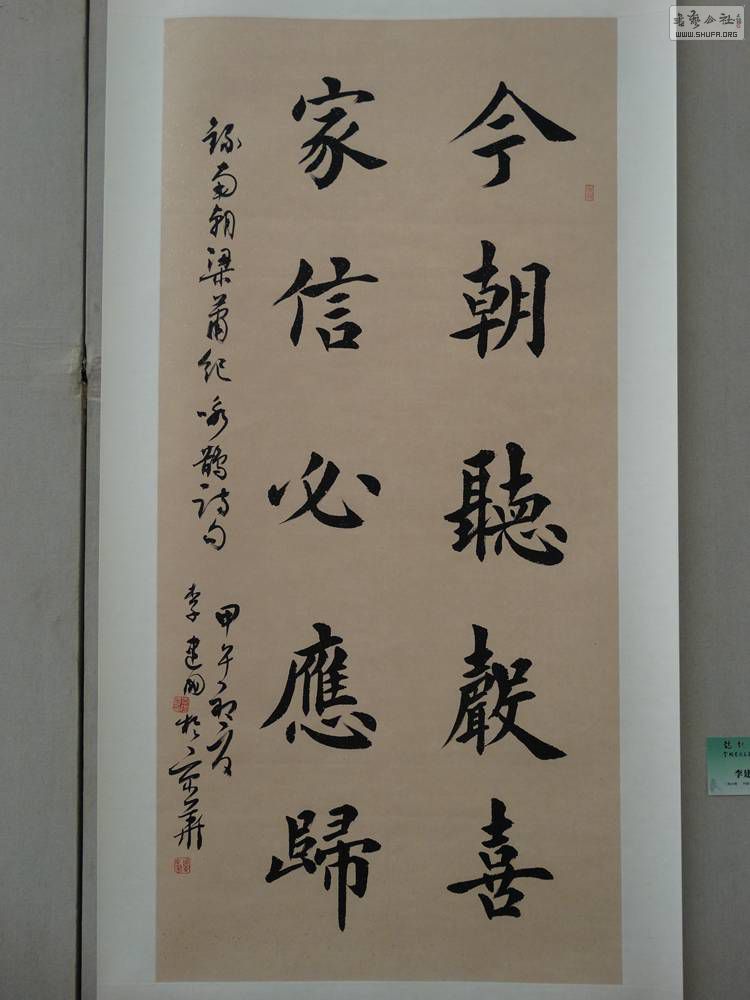 今朝聽聲喜
家信必應歸
錄南朝梁蕭紀咏鵲詩句
甲午初夏
李建國於京華
書藝公社
WWW.SHUFA.ORG
李建